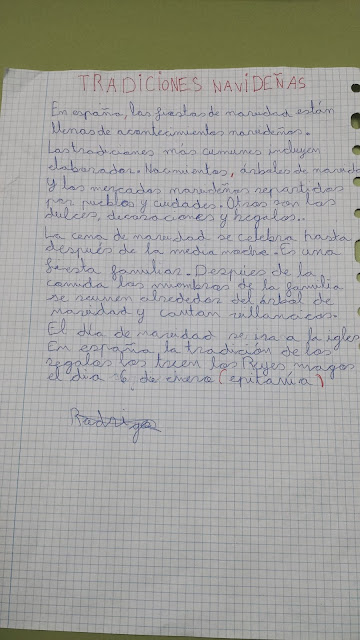 TRADICIONES NAVIDEÑAS
En españa, las fiestas de navidad están
llenas de acontecimientos navideños.
Las tradiciones más comunes incluyen
elaborador. Nacimientos, árboles de navida
y los mercados navideños repartidos
por pueblos y ciudades. Otros son los
dulces, decoraciones y regalos..
La cena de navidad se celebra hasta
después de la media noche. Es una
fiesta familiar. Después de la
comida los miembros de la familia
se reunen alrededor del árbol de
navidad y cantan villancicos.
El día de navidad se va a la igles
En españa la tradición de los
regalos los traen los Reyes magos
el día 6 de enero (epifanía)
Rodrigo